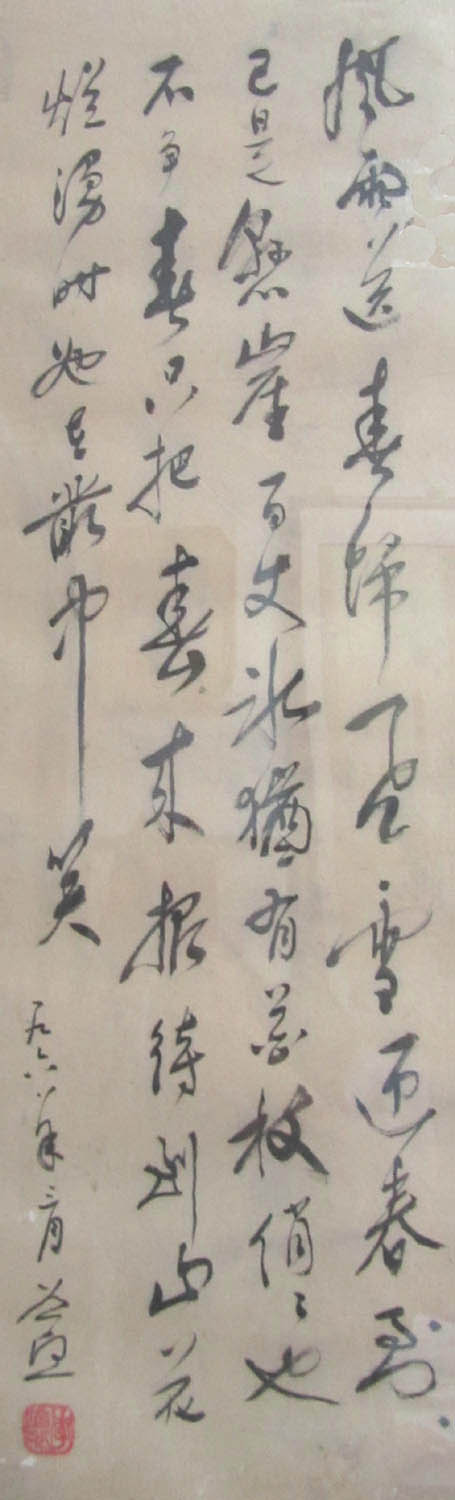 風雨送春歸飛雪迎春到
已是懸崖百丈冰猶有花枝俏〻也
不争春只把春来报待到山花
烂漫时她在叢中笑
一九六八年三月